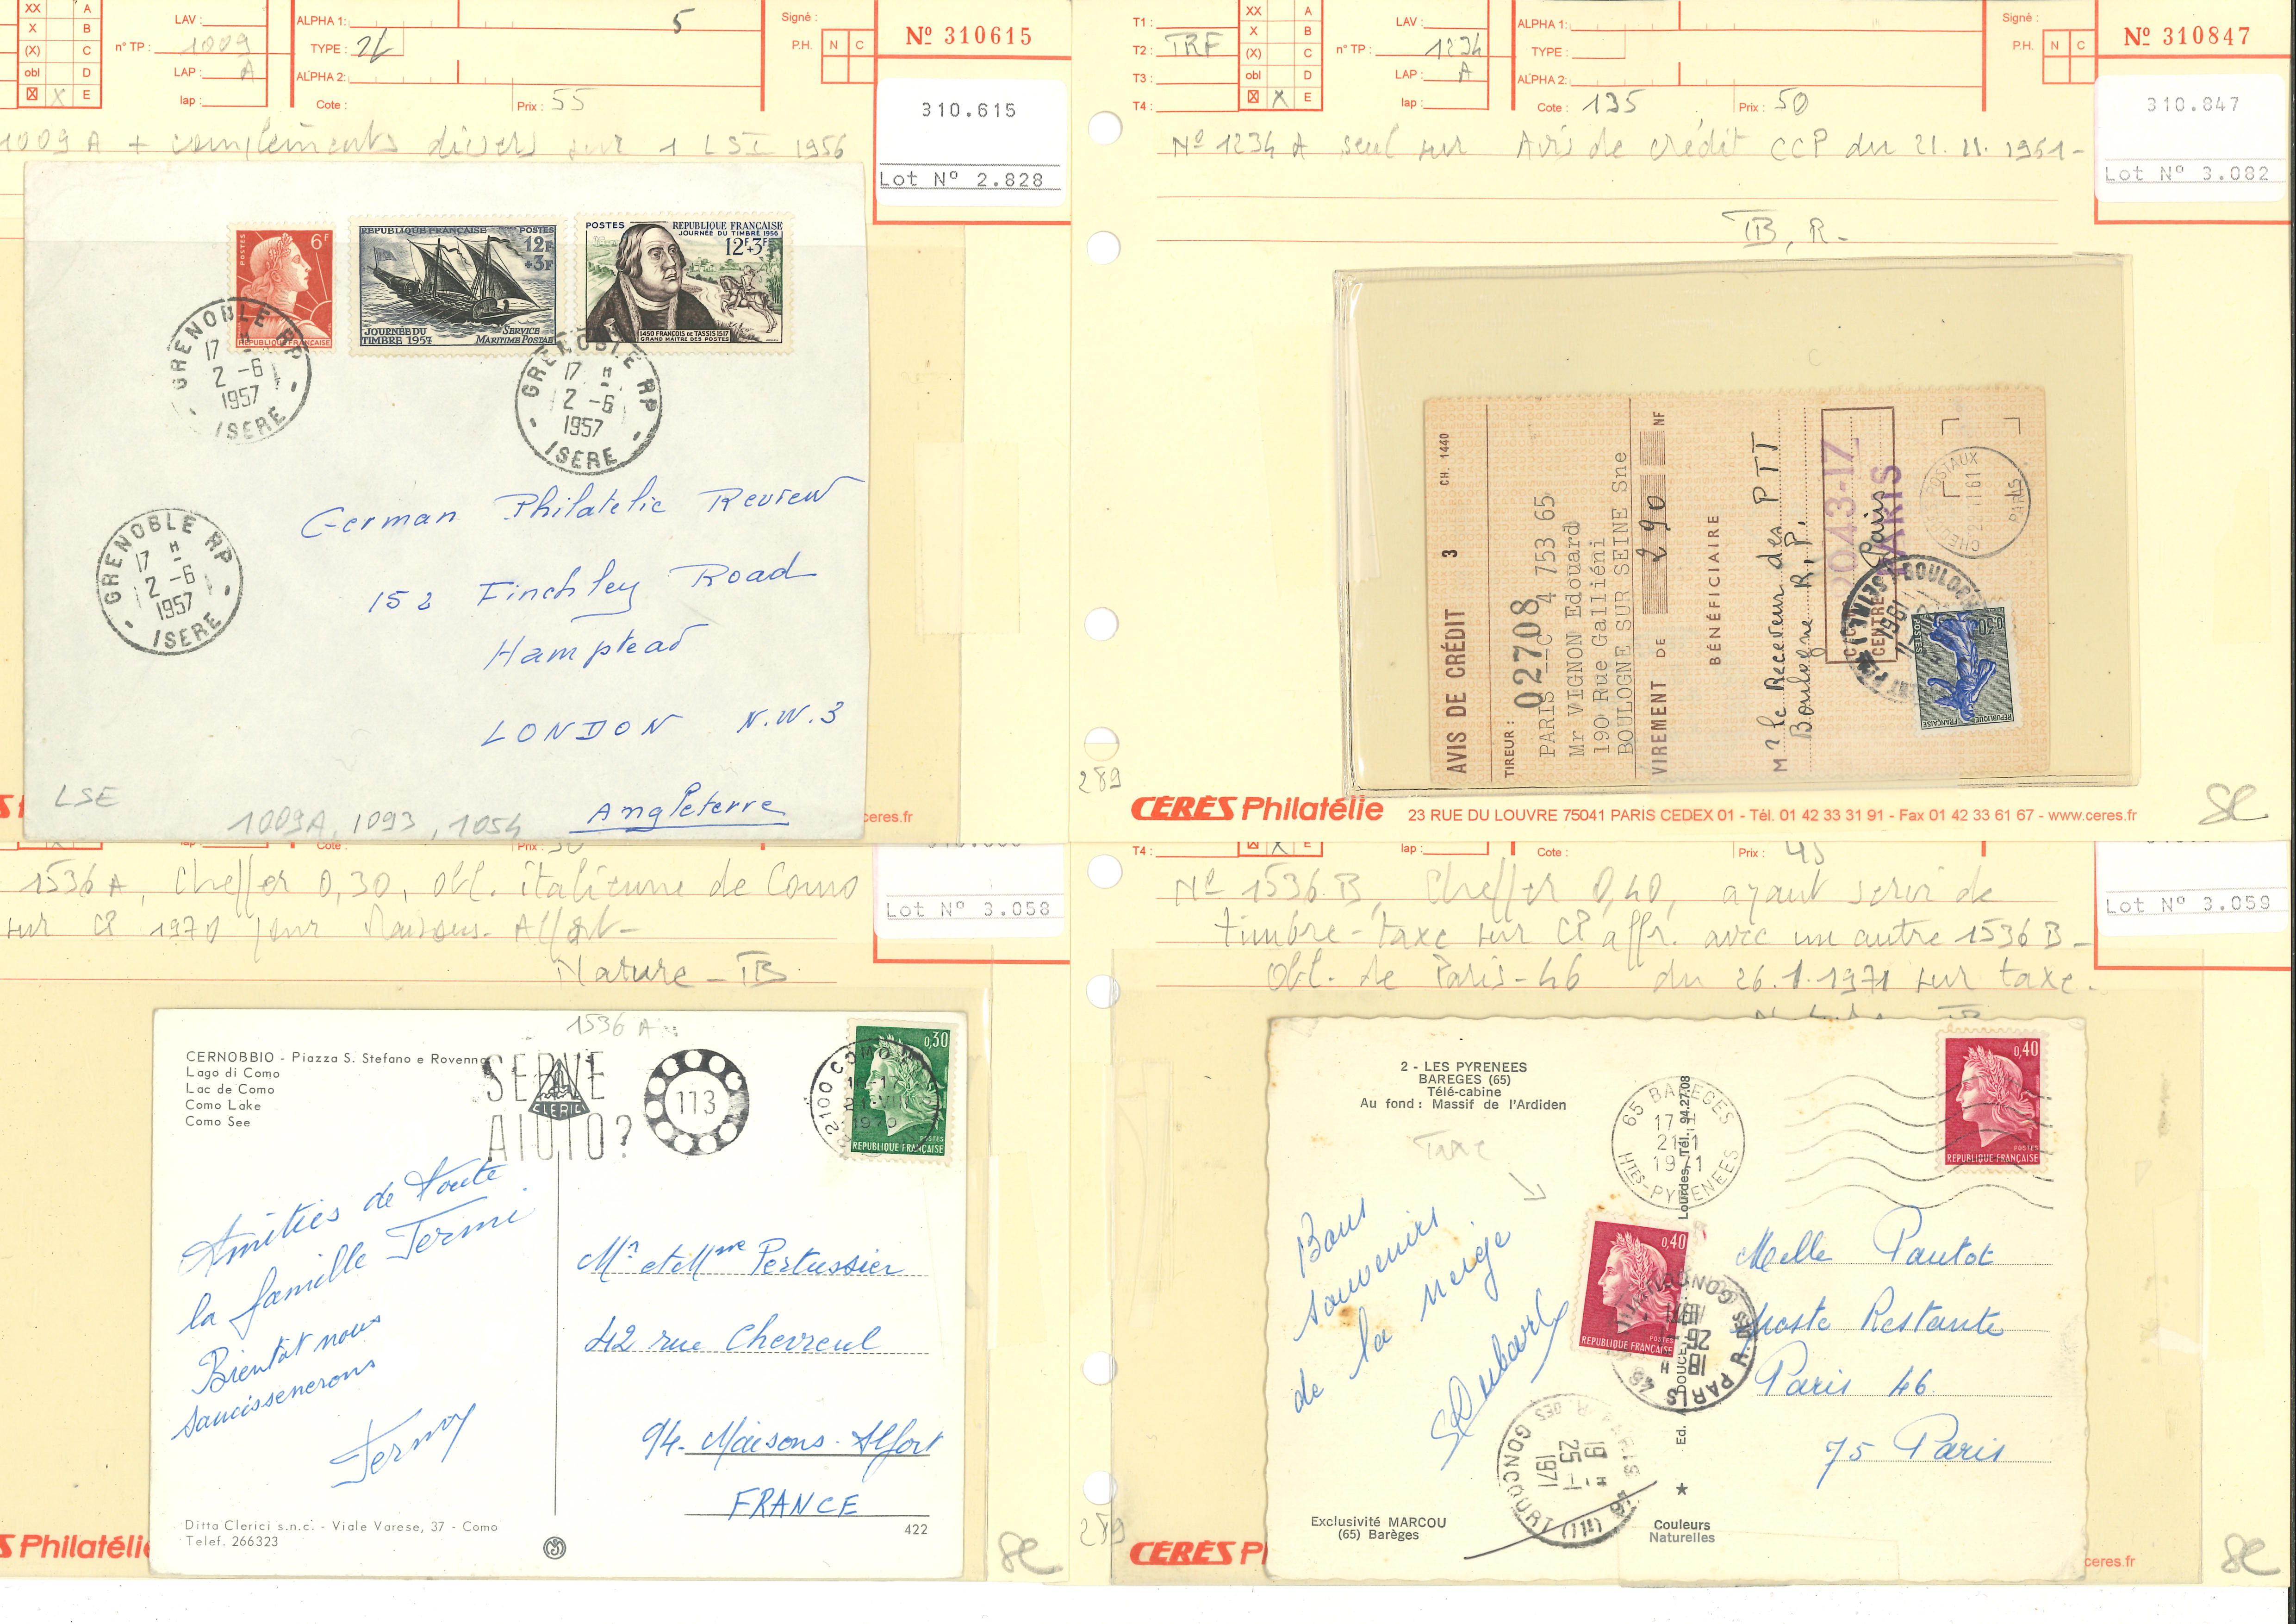 XX A
X B
(X) C
obl D
X E
n° TP : 1009
LAV :
LAP : A
lap :
ALPHA 1: 5
TYPE : 2L
ALPHA 2:
Cote :
Prix : 55
Signé :
P.H. N C
Nº 310615
310.615
Lot Nº 2.828
1009 A + compléments divers sur 1 LSI 1956
POSTES 6F
REPUBLIQUE FRANÇAISE
REPUBLIQUE FRANÇAISE POSTES
12F
+3F
JOURNÉE DU
TIMBRE 1957
SERVICE
MARITIME POSTAL
POSTES REPUBLIQUE FRANÇAISE
JOURNÉE DU TIMBRE 1956
12F+3F
1450 FRANÇOIS DE TASSIS 1517
GRAND MAITRE DES POSTES
GRENOBLE RP
17 H
2 -6
1957
ISERE
GRENOBLE RP
17 H
2 -6
1957
ISERE
GRENOBLE RP
17 H
2 -6
1957
ISERE
German Philatelic Review
152 Finchley Road
Hampstead
LONDON N.W.3
Angleterre
LSE
1009A, 1093, 1054
ceres.fr
T1 :
T2 : TRF
T3 :
T4 :
XX A
X B
(X) C
obl D
X E
LAV :
n° TP : 1234
LAP : A
lap :
ALPHA 1:
TYPE :
ALPHA 2:
Cote : 135
Prix : 50
Signé :
P.H. N C
Nº 310847
310.847
Lot Nº 3.082
Nº 1234 A seul sur Avis de crédit CCP du 21.11.1961-
TB, R-
AVIS DE CRÉDIT 3 CH. 1440
TIREUR : 02708
PARIS C 4 753 65
Mr VIGNON Edouard
190 Rue Galliéni
BOULOGNE SUR SEINE Sne
VIREMENT DE 290 NF
BÉNÉFICIAIRE
M r le Receveur des PTT
Boulogne R.P.
Paris
9043-17
PARIS
CENTRE
0,30
POSTES
REPUBLIQUE FRANÇAISE
289
CERES Philatélie 23 RUE DU LOUVRE 75041 PARIS CEDEX 01 - Tél. 01 42 33 31 91 - Fax 01 42 33 61 67 - www.ceres.fr
SC
Lot Nº 3.058
1536 A, Cheffer 0,30, obl. italienne de Como
sur CP 1970 pour Maisons-Alfort-
Nature - TB
1536 A
CERNOBBIO - Piazza S. Stefano e Rovenna
Lago di Como
Lac de Como
Como Lake
Como See
SERVE
AIUTO?
CLERICI
113
22100 COMO
1970
0,30
POSTES
REPUBLIQUE FRANÇAISE
Amitiés de toute
la famille Termi
Bientôt nous
saucissonerons
Mr et Mme Pertussier
42 rue Chevreul
94- Maisons-Alfort
FRANCE
Ditta Clerici s.n.c. - Viale Varese, 37 - Como
Telef. 266323
422
S Philatélie
SC
T4 :
lap :
Cote :
Prix : 45
Lot Nº 3.059
Nº 1536 B, Cheffer 0,40, ayant servi de
timbre-taxe sur CP affr. avec un autre 1536 B-
Obl. de Paris-46 du 26.1.1971 sur taxe.
2 - LES PYRENEES
BAREGES (65)
Télé-cabine
Au fond : Massif de l'Ardiden
65 BAREGES
17 H
21-1
1971
HTES-PYRENEES
0,40
POSTES
REPUBLIQUE FRANÇAISE
Taxe
0,40
POSTES
REPUBLIQUE FRANÇAISE
PARIS 46
18 H
26-1
1971
19 H
25-1
1971
R. DES GONCOURT (11e)
Bons
souvenirs
de la neige
Melle Pautot
poste Restante
Paris 46
75 Paris
Lourdes, Tél. 94.27.08
Exclusivité MARCOU
(65) Barèges
Couleurs
Naturelles
289
CERES
ceres.fr
SC